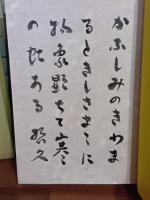 かなしみのきわま
るときしさま〲に
物象顕ちて寒
の虹ある 哲久